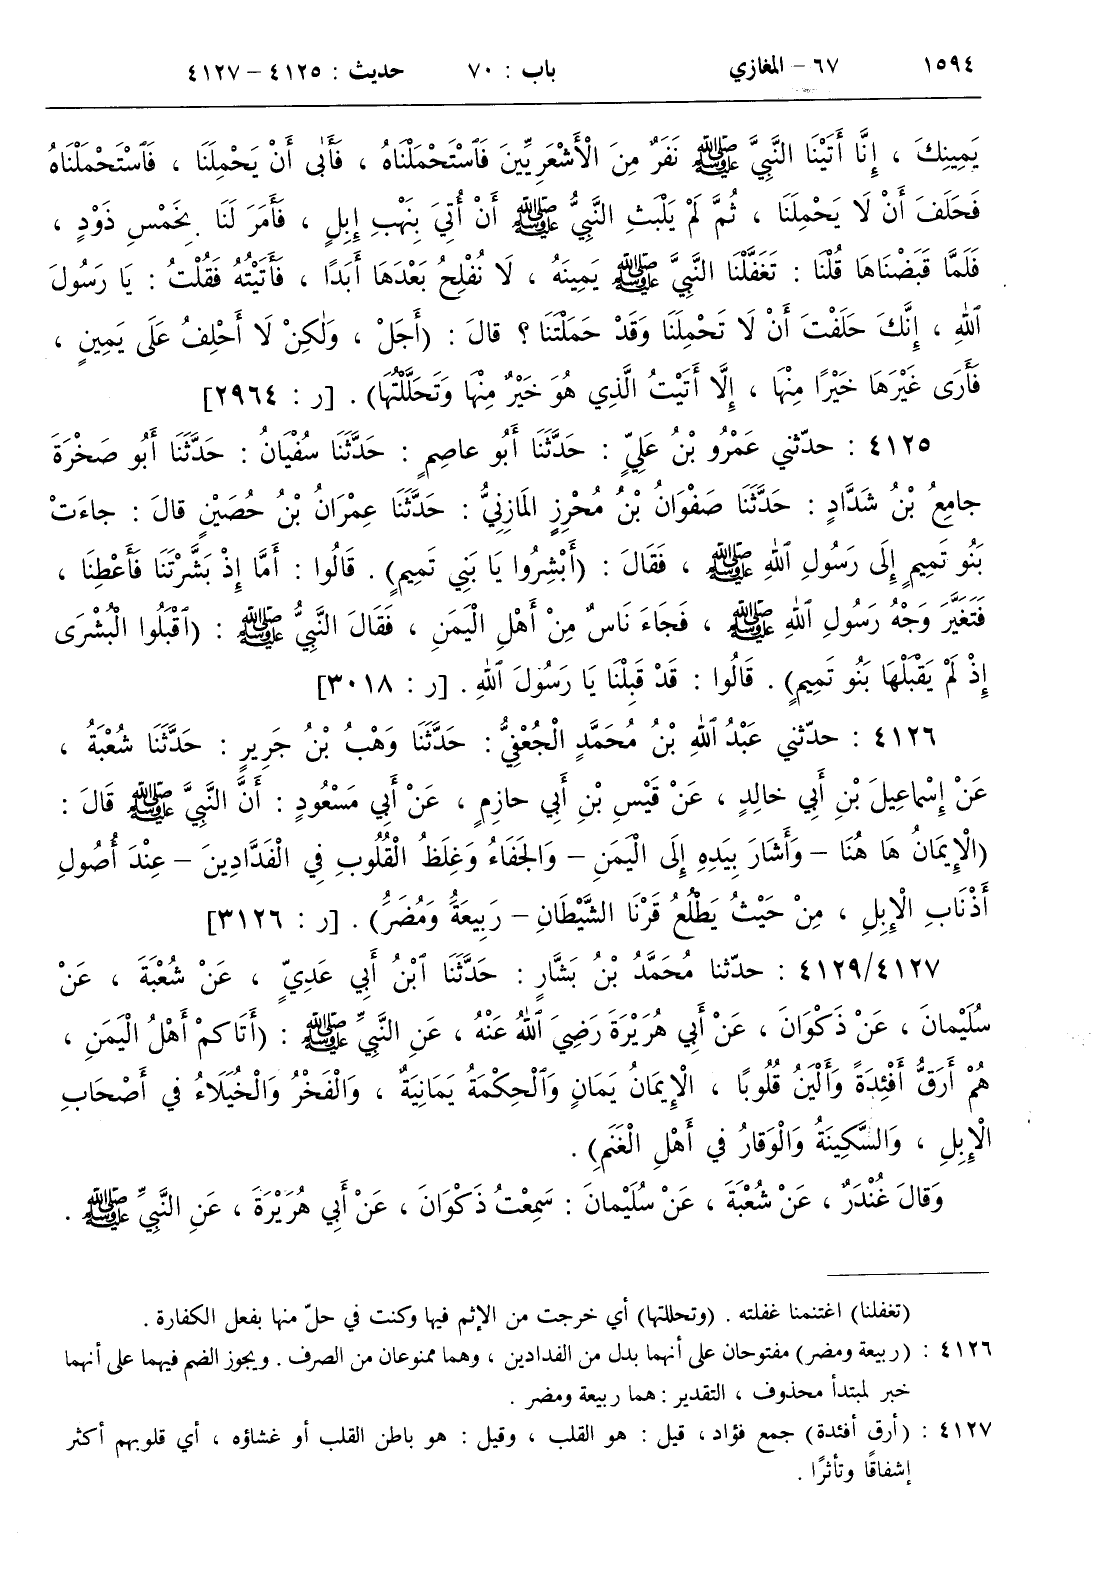 ١٥٩٤ ٦٧ – المغازي باب : ٧٠ حديث : ٤١٢٥ – ٤١٢٧
يَمِينِكَ ، إِنَّا أَتَيْنَا النَّبِيَّ ﷺ نَفَرٌ مِنَ الْأَشْعَرِيِّينَ فَٱسْتَحْمَلْنَاهُ ، فَأَبٰى أَنْ يَحْمِلَنَا ، فَٱسْتَحْمَلْنَاهُ
فَحَلَفَ أَنْ لَا يَحْمِلَنَا ، ثُمَّ لَمْ يَلْبَثِ النَّبِيُّ ﷺ أَنْ أُتِيَ بِنَهْبِ إِبِلٍ ، فَأَمَرَ لَنَا بِخَمْسِ ذَوْدٍ ،
فَلَمَّا قَبَضْنَاهَا قُلْنَا : تَغَفَّلْنَا النَّبِيَّ ﷺ يَمِينَهُ ، لَا نُفْلِحُ بَعْدَهَا أَبَدًا ، فَأَتَيْتُهُ فَقُلْتُ : يَا رَسُولَ
ٱللهِ ، إِنَّكَ حَلَفْتَ أَنْ لَا تَحْمِلَنَا وَقَدْ حَمَلْتَنَا ؟ قالَ : (أَجَلْ ، وَلٰكِنْ لَا أَحْلِفُ عَلَى يَمِينٍ ،
فَأَرَى غَيْرَهَا خَيْرًا مِنْهَا ، إِلَّا أَتَيْتُ الَّذِي هُوَ خَيْرٌ مِنْهَا وَتَحَلَّلْتُهَا) . [ر : ٢٩٦٤]
٤١٢٥ : حدّثني عَمْرُو بْنُ عَلِيٍّ : حَدَّثَنَا أَبُو عاصِمٍ : حَدَّثَنَا سُفْيَانُ : حَدَّثَنَا أَبُو صَخْرَةَ
جامِعُ بْنُ شَدَّادٍ : حَدَّثَنَا صَفْوَانُ بْنُ مُحْرِزٍ المَازِنِيُّ : حَدَّثَنَا عِمْرَانُ بْنُ حُصَيْنٍ قالَ : جاءَتْ
بَنُو تَمِيمٍ إِلَى رَسُولِ ٱللهِ ﷺ ، فَقَالَ : (أَبْشِرُوا يَا بَنِي تَمِيمٍ) . قَالُوا : أَمَّا إِذْ بَشَّرْتَنَا فَأَعْطِنَا ،
فَتَغَيَّرَ وَجْهُ رَسُولِ ٱللهِ ﷺ ، فَجَاءَ نَاسٌ مِنْ أَهْلِ الْيَمَنِ ، فَقَالَ النَّبِيُّ ﷺ : (ٱقْبَلُوا الْبُشْرَى
إِذْ لَمْ يَقْبَلْهَا بَنُو تَمِيمٍ) . قَالُوا : قَدْ قَبِلْنَا يَا رَسُولَ ٱللهِ . [ر : ٣٠١٨]
٤١٢٦ : حدّثني عَبْدُ ٱللهِ بْنُ مُحَمَّدٍ الْجُعْفِيُّ : حَدَّثَنَا وَهْبُ بْنُ جَرِيرٍ : حَدَّثَنَا شُعْبَةُ ،
عَنْ إِسْماعِيلَ بْنِ أَبِي خالِدٍ ، عَنْ قَيْسِ بْنِ أَبِي حازِمٍ ، عَنْ أَبِي مَسْعُودٍ : أَنَّ النَّبِيَّ ﷺ قَالَ :
(الْإِيمَانُ هَا هُنَا – وَأَشَارَ بِيَدِهِ إِلَى الْيَمَنِ – وَالجَفَاءُ وَغِلَظُ الْقُلُوبِ فِي الْفَدَّادِينَ – عِنْدَ أُصُولِ
أَذْنَابِ الْإِبِلِ ، مِنْ حَيْثُ يَطْلُعُ قَرْنَا الشَّيْطَانِ – رَبِيعَةَُ وَمُضَرَُ) . [ر : ٣١٢٦]
٤١٢٩/٤١٢٧ : حدّثنا مُحَمَّدُ بْنُ بَشَّارٍ : حَدَّثَنَا ٱبْنُ أَبِي عَدِيٍّ ، عَنْ شُعْبَةَ ، عَنْ
سُلَيْمانَ ، عَنْ ذَكْوَانَ ، عَنْ أَبِي هُرَيْرَةَ رَضِيَ ٱللهُ عَنْهُ ، عَنِ النَّبِيِّ ﷺ : (أَتَاكمْ أَهْلُ الْيَمَنِ ،
هُمْ أَرَقُّ أَفْئِدَةً وَأَلْيَنُ قُلُوبًا ، الْإِيمَانُ يَمَانٍ وَٱلْحِكْمَةُ يَمَانِيَةٌ ، وَالْفَخْرُ وَالْخُيَلَاءُ فِي أَصْحَابِ
الْإِبِلِ ، وَالسَّكِينَةُ وَالْوَقارُ فِي أَهْلِ الْغَنَمِ) .
وَقالَ غُنْدَرٌ ، عَنْ شُعْبَةَ ، عَنْ سُلَيْمانَ : سَمِعْتُ ذَكْوَانَ ، عَنْ أَبِي هُرَيْرَةَ ، عَنِ النَّبِيِّ ﷺ .
(تغفلنا) اغتنمنا غفلته . (وتحللتها) أي خرجت من الإثم فيها وكنت في حلّ منها بفعل الكفارة .
٤١٢٦ : (ربيعة ومضر) مفتوحان على أنهما بدل من الفدادين ، وهما ممنوعان من الصرف . ويجوز الضم فيهما على أنهما
خبر لمبتدأ محذوف ، التقدير : هما ربيعة ومضر .
٤١٢٧ : (أرق أفئدة) جمع فؤاد ، قيل : هو القلب ، وقيل : هو باطن القلب أو غشاؤه ، أي قلوبهم أكثر
إشفاقًا وتأثرًا .